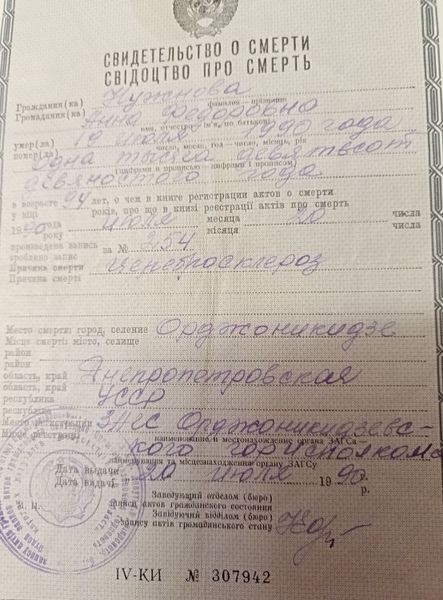 СВИДЕТЕЛЬСТВО О СМЕРТИ
СВІДОЦТВО ПРО СМЕРТЬ
Гражданин(ка) Нужнова
Громадянин(ка) фамилия — прізвище
Анна Федоровна
имя, отчество (ім'я, по батькові)
умер(ла) 19 июля 1990 года
помер(ла) число, месяц, год — число, місяць, рік
Одна тысяча девятьсот
(цифрами и прописью — цифрами і прописом)
девяностого года
в возрасте 94 лет, о чем в книге регистрации актов о смерти
у віці років, про що в книзі реєстрації актів про смерть
1990 года июля месяца 20 числа
року місяця числа
произведена запись за № 354
зроблено запис
Причина смерти Церебросклероз
Причина смерті
Место смерти: город, селение Орджоникидзе
Місце смерті: місто, селище
район
район
область, край Днепропетровская
область, край
республика УССР
республіка
Место регистрации ЗАГС Орджоникидзевс-
Місце реєстрації наименование и местонахождение органа ЗАГСа
кого горисполкома
найменування і місцезнаходження органу ЗАГСу
Дата выдачи 20 июля 1990 г.
Дата видачі р.
Заведующий отделом (бюро)
записи актов гражданского состояния
Завідуючий відділом (бюро)
запису актів громадянського стану
М. П.
IV-КИ № 307942